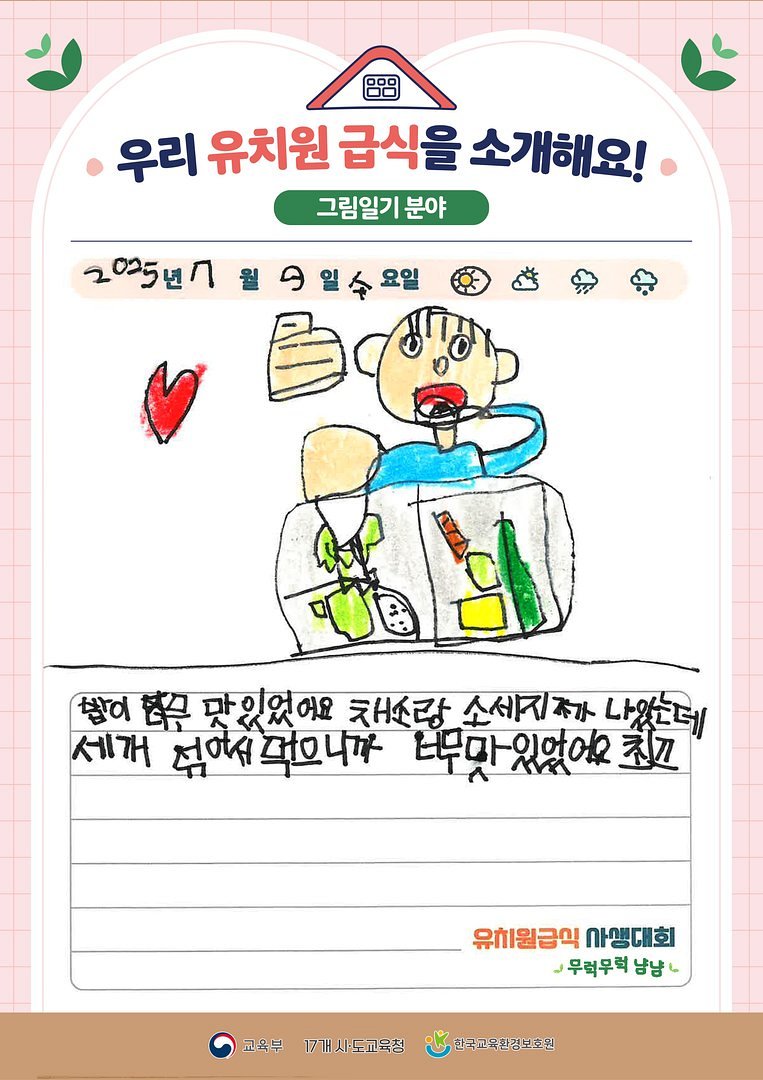 우리 유치원 급식을 소개해요!
그림일기 분야
2025년 7월 9일 수요일
밥이 너무 맛있었어요 채소랑 소세지가 나왔는데
세개 섞어서 먹으니까 너무 맛있었어요 최고
유치원급식 사생대회
무럭무럭 냠냠
교육부 17개 시·도교육청 한국교육환경보호원